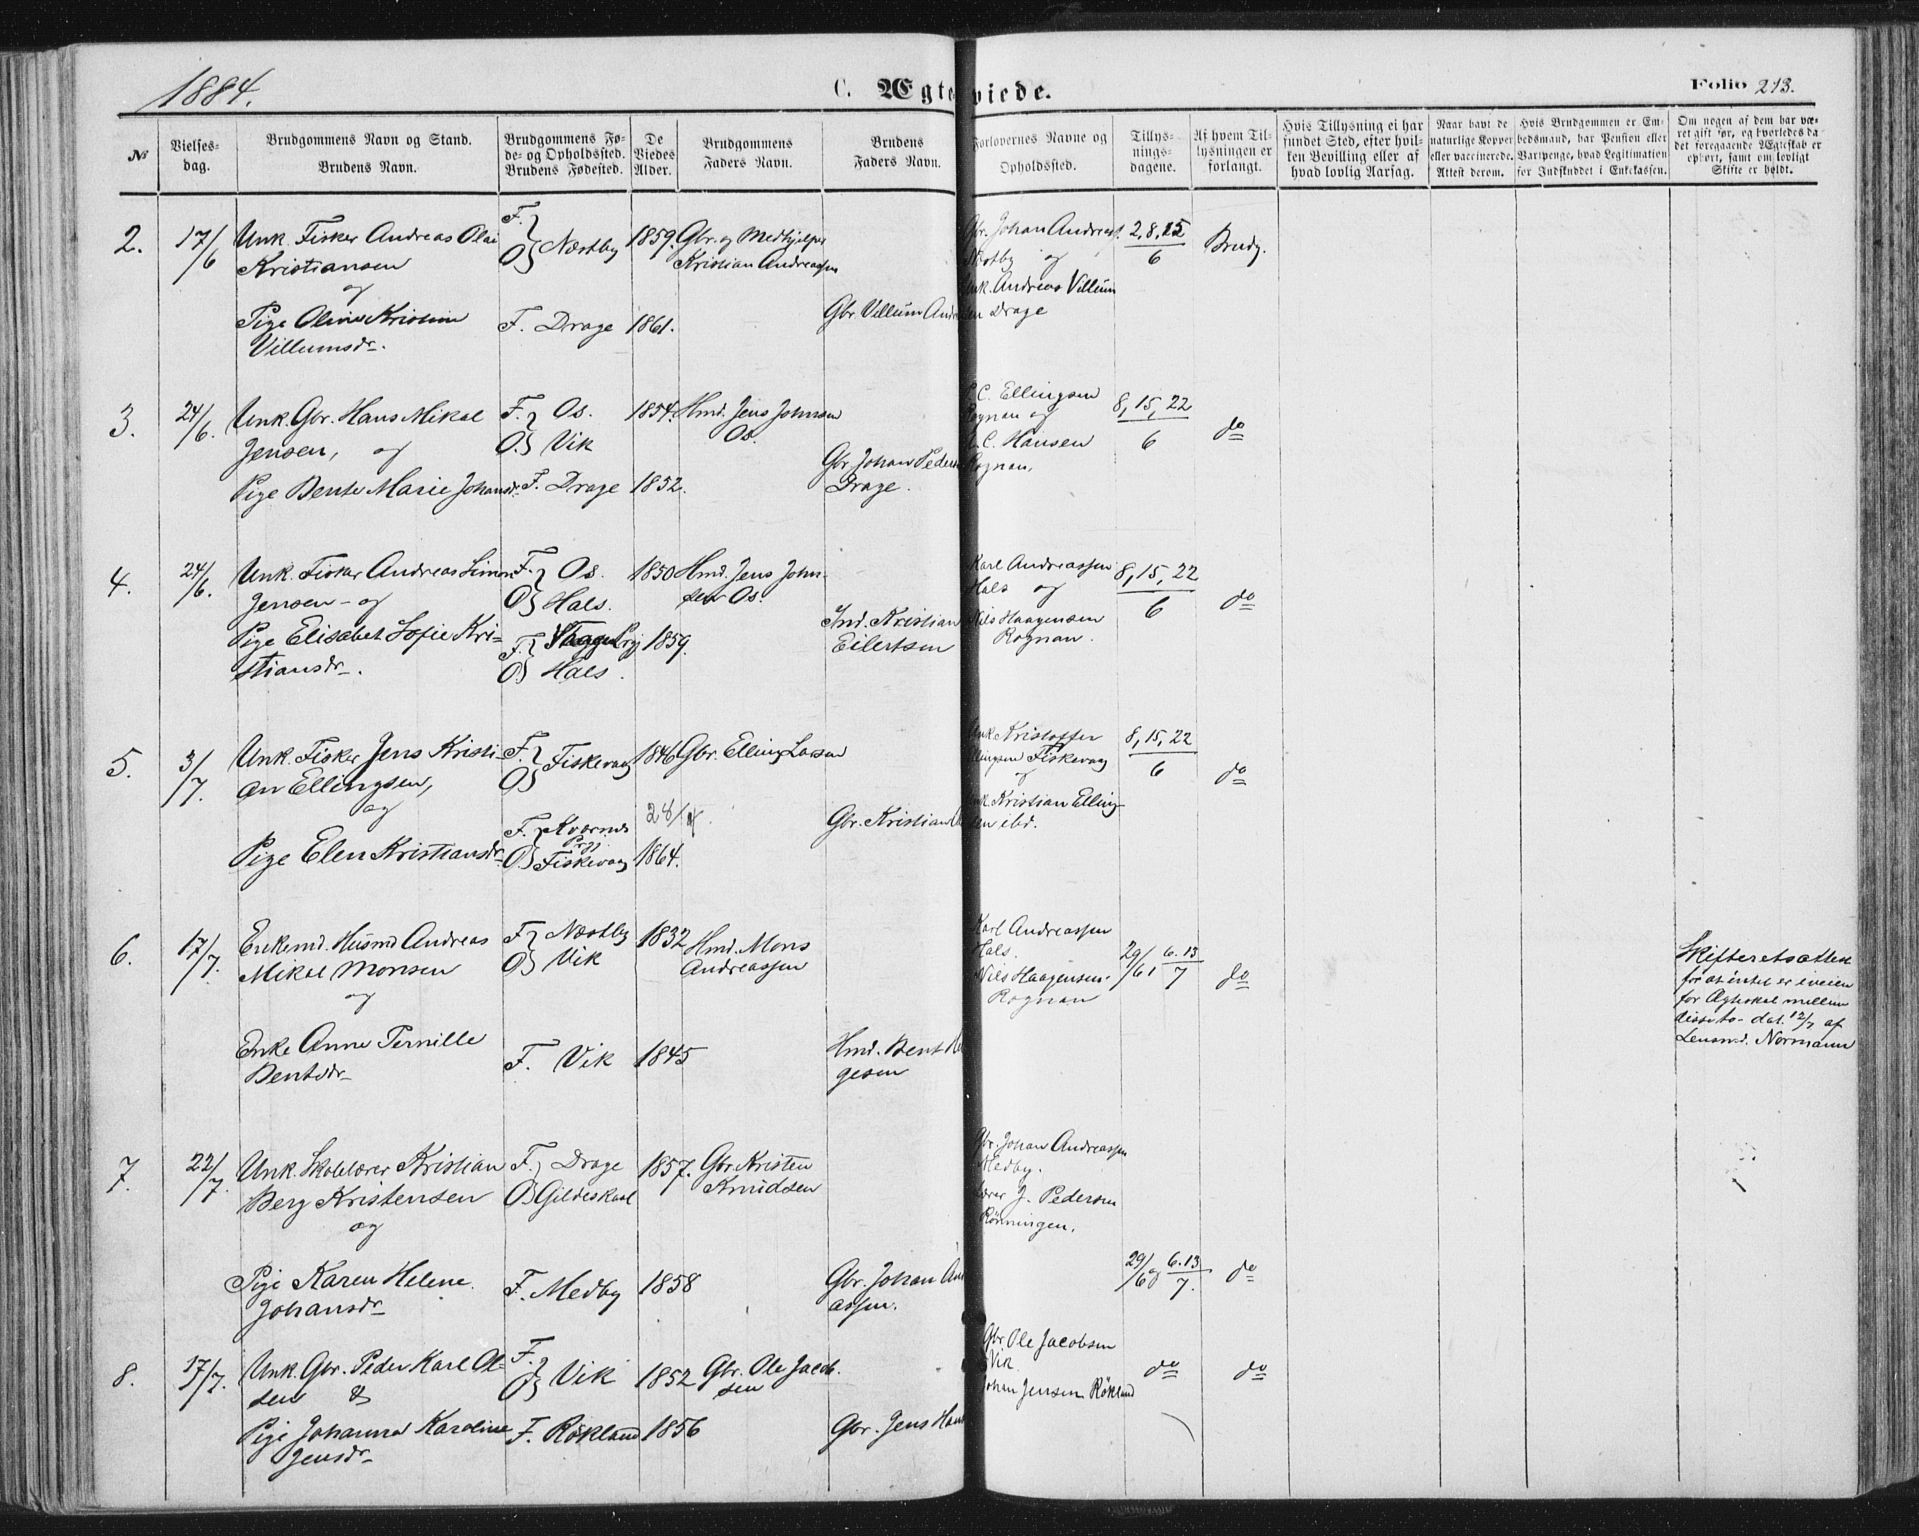 1884.
C. Ægteviede.
Folio 213.
№
Vielses-
dag.
Brudgommens Navn og Stand.
Brudens Navn.
Brudgommens Fø-
de- og Opholdssted.
Brudens Fødested.
De
Viedes
Alder.
Brudgommens
Faders Navn.
Brudens
Faders Navn.
Forlovernes Navne og
Opholdssted.
Tillys-
nings-
dagene.
Af hvem Til-
lysningen er
forlangt.
Hvis Tillysning ei har
fundet Sted, efter hvil-
ken Bevilling eller af
hvad lovlig Aarsag.
Naar havt de
naturlige Kopper
eller vaccinerede.
Attest derom.
Hvis Brudgommen er Em-
bedsmand, har Pension eller
Vartpenge, hvad Legitimation
for Indskuddet i Enkekassen.
Om nogen af dem har væ-
ret gift før, og hvorledes da
det foregaaende Ægteskab er
ophørt, samt om lovligt
Skifte er holdt.
2. 17/6 Unk. Fisker Andreas Olai
Kristiansen
og
Pige Oline Kristine
Villumsdr.
F. } Næstby
O }
F. Drage
1859.
1861.
Gbr. og Medhjelper
Kristian Andreassen
Gbr. Villum
Gbr. Johan Andreas
Næstby og
Unk. Andreas Villum
sen Drage
2, 8, 15
6
Brudg.
3. 24/6. Unk. Gbr. Hans Mikal
Jensen, og
Pige Bente Marie Johansdr.
F. } Os.
O. } Vik
F. Drage
1854.
1852.
Hmd. Jens Johnsen
Os.
Gbr. Johan Peders
Drage.
C. Ellingsen
Rognan og
C. Hansen
Rognan.
8, 15, 22
6
do
4. 24/6. Unk. Fisker Andreas Simon
Jensen - og
Pige Elisabet Sofie Kri-
stiansdr.
F. } Os.
O } Hals.
F. }
O. } Hals.
1850
1859.
Hmd. Jens John-
sen Os.
Ind. Kristian
Eilertsen
Karl Andreassen
Hals og
Nils Haagensen
Rognan.
8, 15, 22
6
do
5. 3/7. Unk. Fisker Jens Kristi-
an Ellingsen,
og
Pige Elen Kristiansdr.
F. } Fiskevaag
O }
F. } Kvernes
Prgj.
O. } Fiskevaag
1846
28/4.
1864.
Gbr. Elling Larsen
Gbr. Kristian
Unk. Kristoffer
Ellingsen Fiskevaag
og
Unk. Kristian Elling-
sen ibd.
8, 15, 22
6
do
6. 17/7. Enkemd. Husmd Andreas
Mikal Monsen
og
Enke Anne Pernille
Bentsdr.
F. } Næstby
O } Vik
F. Vik
1832
1845
Hmd. Mons
Andreassen
Hmd. Bent
gesen
Karl Andreassen
Hals.
Nils Haagensen
Rognan
29/6 6.13
7
do
Skifteretsattest
for at intet er iveien
for Ægteskab mellem
disse to - dat. 12/7 af
Lensmd. Normann
7. 22/7. Unk. Skolelærer Kristian
Berg Kristensen
og
Pige Karen Helene
Johansdr.
F. } Drage
O } Gildeskaal
F. Medby
1857.
1858
Gbr. Kristen
Knudsen
Gbr. Johan And
assen.
Gbr. Johan Andreassen
Medby.
Lærer J. Pedersen
Rönningen.
29/6 og 6.13
7.
do
8. 17/7. Unk. Gbr. Peder Karl Ol-
sen &
Pige Johanna Karoline
Jensdr.
F. } Vik
O }
F. Rökland
1852
1856
Gbr. Ole Jacob-
sen
Gbr. Jens Hans
Gbr. Ole Jacobsen
Vik.
Johan Jensen Rökland
do
do